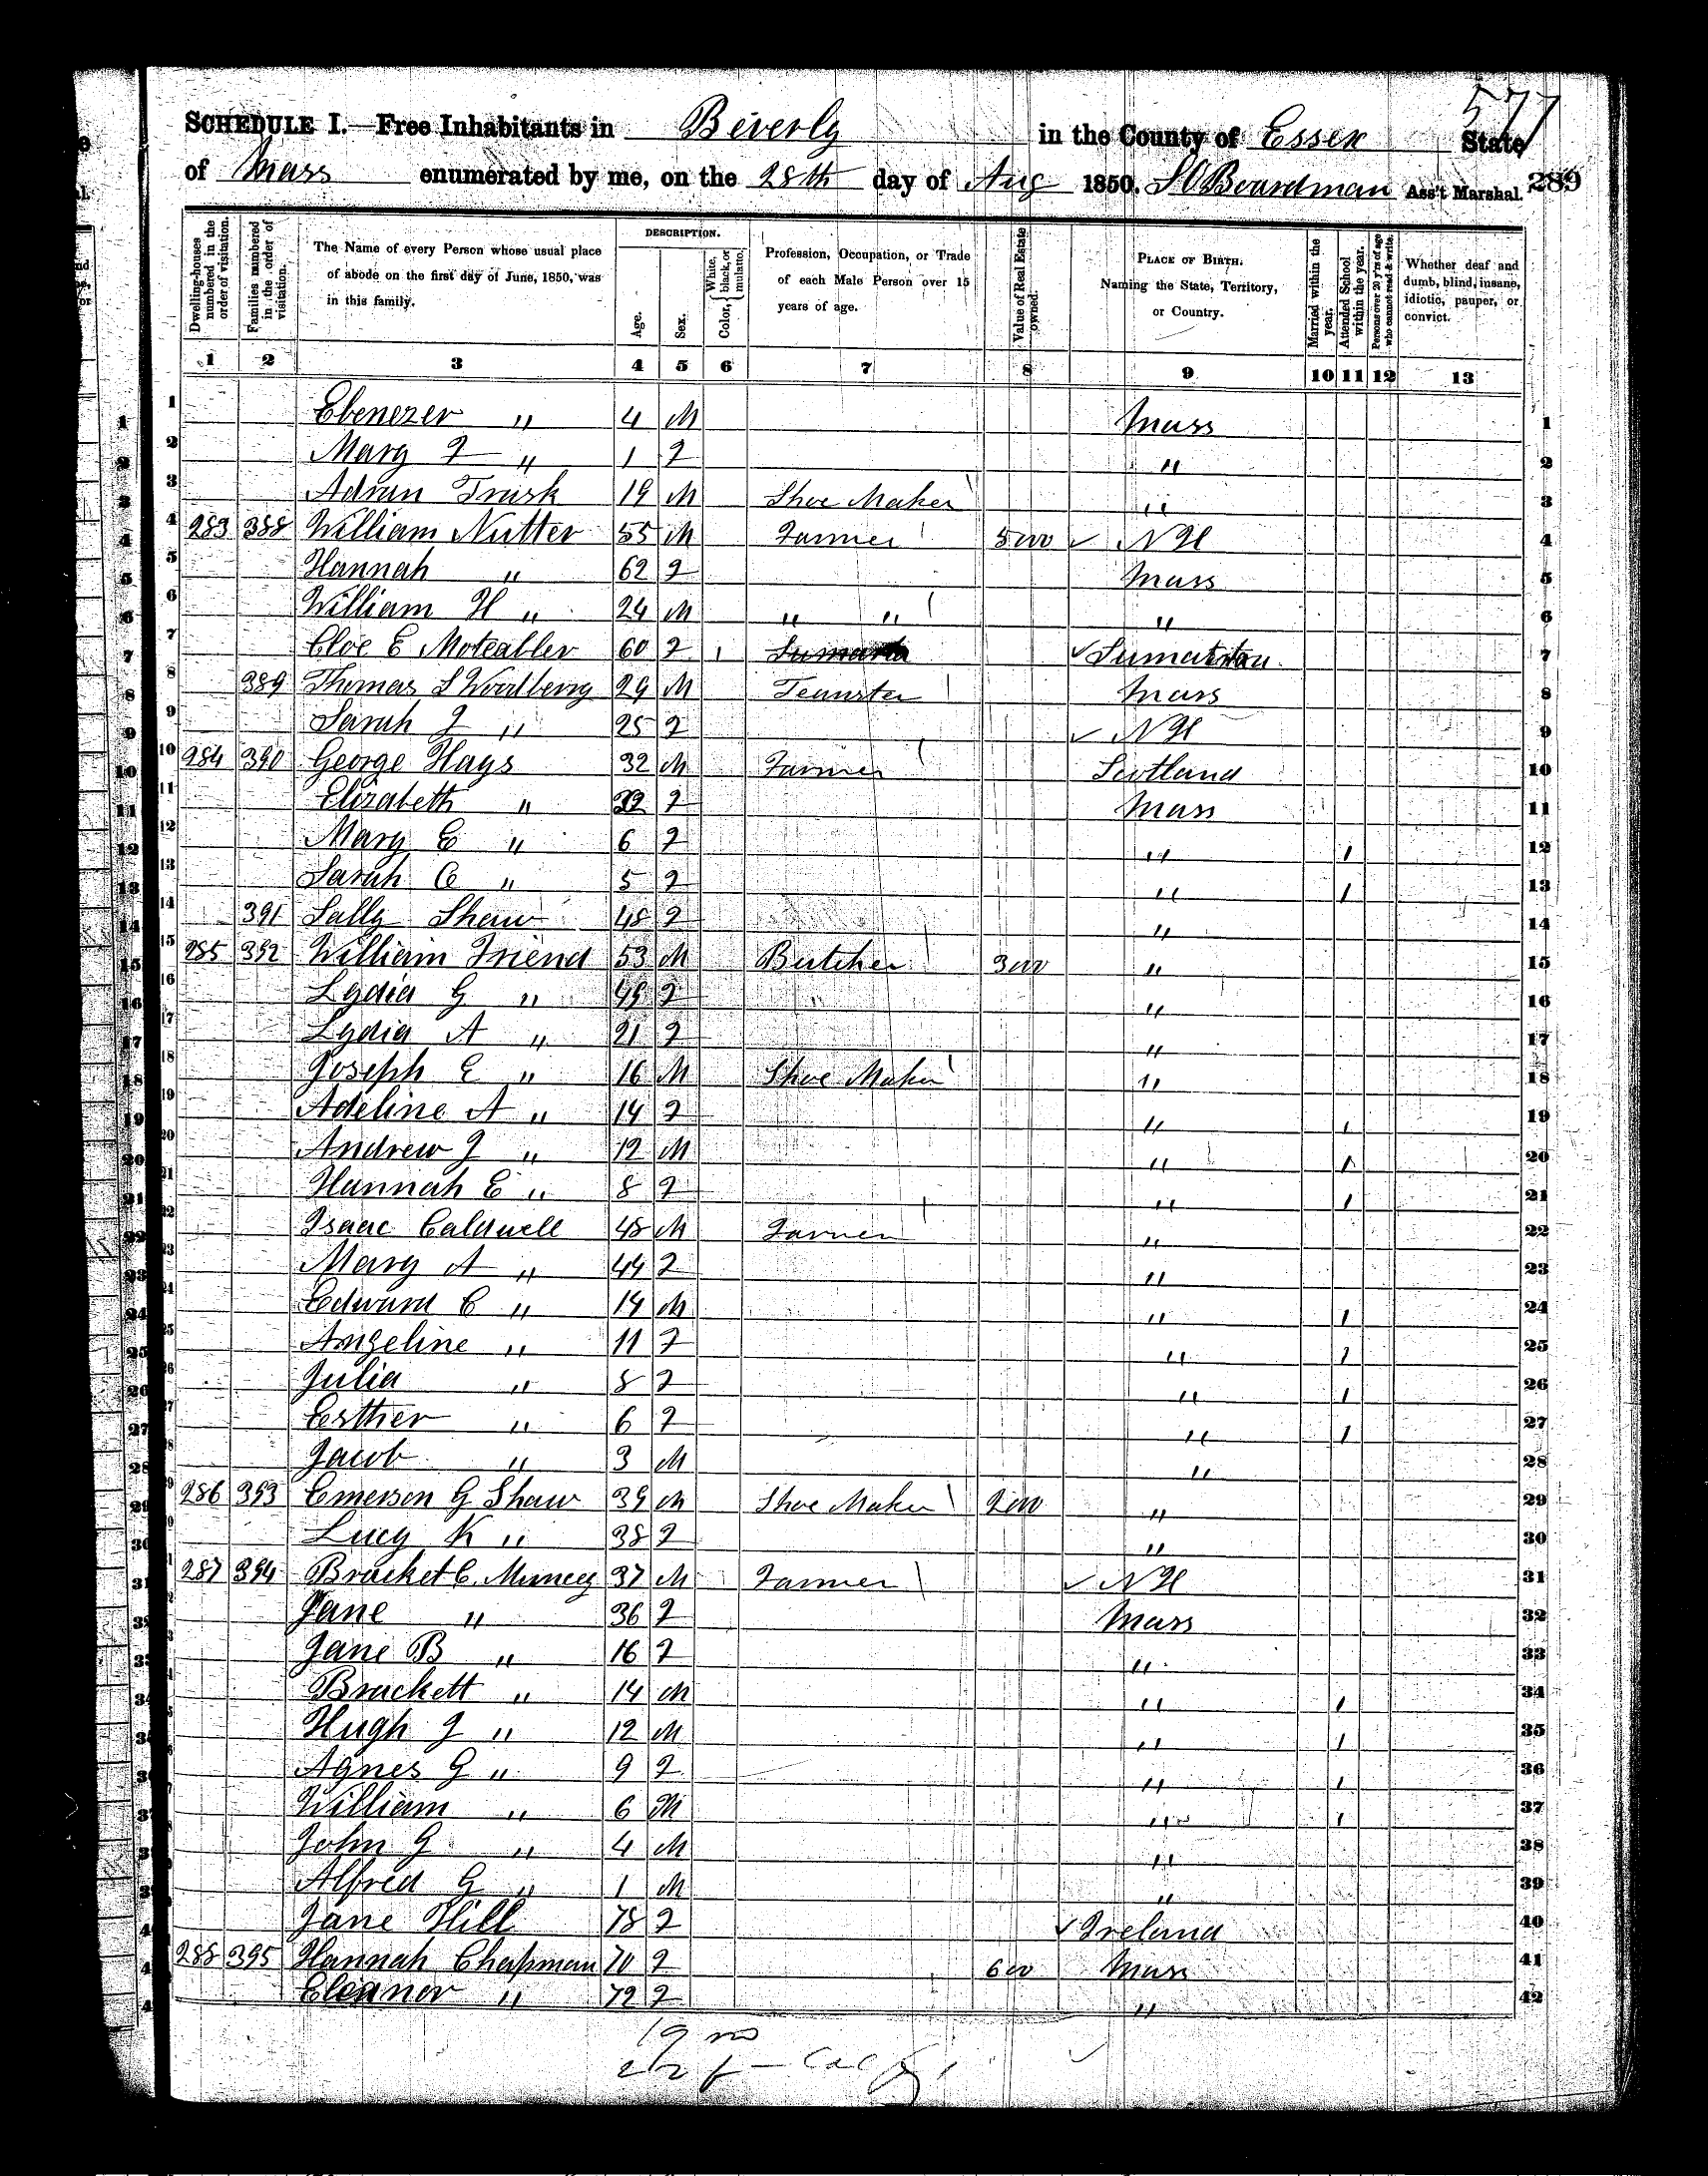 577
SCHEDULE I.—Free Inhabitants in Beverly in the County of Essex State
of Mass enumerated by me, on the 28th day of Aug 1850. S O Boardman Ass't Marshal. 289
Dwelling-houses numbered in the order of visitation.
Families numbered in the order of visitation.
The Name of every Person whose usual place of abode on the first day of June, 1850, was in this family.
DESCRIPTION.
Age.
Sex.
Color, { White, black, or mulatto.
Profession, Occupation, or Trade of each Male Person over 15 years of age.
Value of Real Estate owned.
PLACE OF BIRTH. Naming the State, Territory, or Country.
Married within the year.
Attended School within the year.
Persons over 20 y'rs of age who cannot read & write.
Whether deaf and dumb, blind, insane, idiotic, pauper, or convict.
1 2 3 4 5 6 7 8 9 10 11 12 13
1 Ebenezer " 4 M Mass 1
2 Mary F " 1 F " 2
3 Adran Trask 19 M Shoe Maker " 3
4 283 388 William Nutter 55 M Farmer 5000 ✓ NH 4
5 Hannah " 62 F Mass 5
6 William H " 24 M " " " 6
7 Cloe E 60 F ✓ 7
8 389 Thomas S Woodberry 29 M Teamster Mass 8
9 Sarah J " 25 F ✓ NH 9
10 284 390 George Hays 32 M Farmer Scotland 10
11 Elizabeth " F Mass 11
12 Mary E " 6 F " 1 12
13 Sarah C " 5 F " 1 13
14 391 Sally Shaw 48 F " 14
15 285 392 William Friend 53 M Butcher 3000 " 15
16 Lydia G " 49 F " 16
17 Lydia A " 21 F " 17
18 Joseph E " 16 M Shoe Maker " 18
19 Adeline A " 14 F " 1 19
20 Andrew J " 12 M " 1 20
21 Hannah E " 8 F " 1 21
22 Isaac Caldwell 48 M Farmer " 22
23 Mary A " 44 F " 23
24 Edward C " 14 M " 1 24
25 Angeline " 11 F " 1 25
26 Julia " 8 F " 1 26
27 Esther " 6 F " 1 27
28 Jacob " 3 M " 28
29 286 393 Emerson G Shaw 39 M Shoe Maker 2000 " 29
30 Lucy K " 38 F " 30
31 287 394 Bracket C. Muncey 37 M Farmer ✓ NH 31
32 Jane " 36 F Mass 32
33 Jane B " 16 F " 33
34 Brackett " 14 M " 1 34
35 Hugh J " 12 M " 1 35
36 Agnes G " 9 F " 1 36
37 William " 6 M " 1 37
38 John G " 4 M " 38
39 Alfred G " 1 M " 39
40 Jane Hill 78 F ✓ Ireland 40
41 288 395 Hannah Chapman 70 F 600 Mass 41
42 Eleanor " 72 F " 42
19 m
22 f